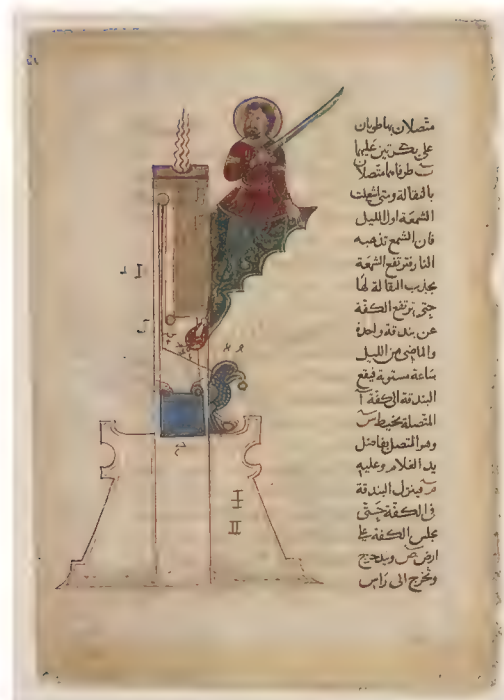 متصلان بها طويان
على بكرتين عليها
طرفاهما متصلان
بالثقالة ومتى اشعلت
الشمعة اول الليل
فان الشمع تذهبه
النار فترتفع الشمعة
بجذب الثقالة لها
حتى ترتفع الكفة
عن بندقة واحدة
والماضى من الليل
ساعة مستوية فيقع
البندقة الى كفة آ
المتصلة بخيط س
وهو المتصل بفاضل
يد الغلام وعليه
فينزل البندقة
فى الكفة حتى
تجلس الكفة على
ارض وتتدحرج
وتخرج الى راس